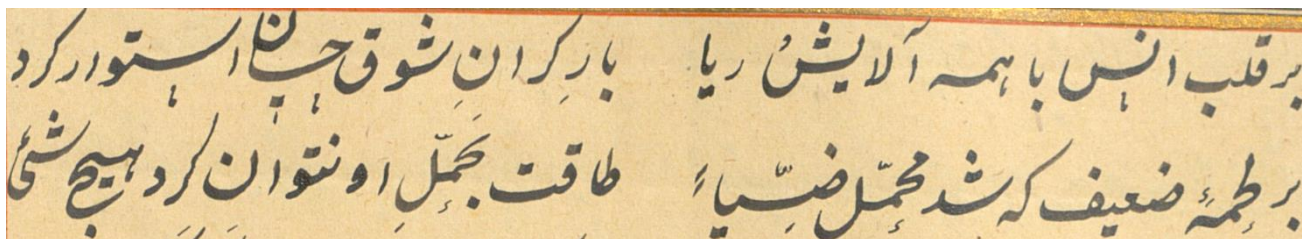 بر قلب انس با همه آلایشُ ریا بارِ گرانِ شوق چسان استوار کرد
بر طمهٔ ضعیف که شد محمّل ضیّاءٍ طاقت بحمّلِ او نتوان کرد هیچ شئی